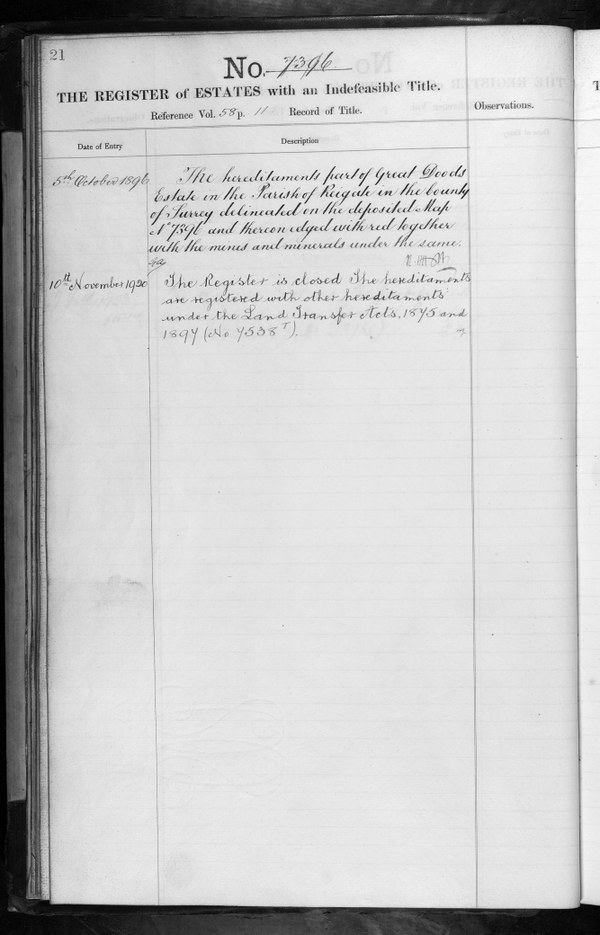 21
No. 7396
THE REGISTER of ESTATES with an Indefeasible Title.
Reference Vol. 58 p. 11 Record of Title.
Observations.
Date of Entry
Description
5th October 1896
The hereditaments part of Great Doods
Estate in the Parish of Reigate in the County
of Surrey delineated on the deposited Map
No 7396 and thereon edged with red together
with the mines and minerals under the same.
10th November 1920
The Register is closed The hereditaments
are registered with other hereditaments
under the Land Transfer Acts, 1875 and
1897 (No 7538T).